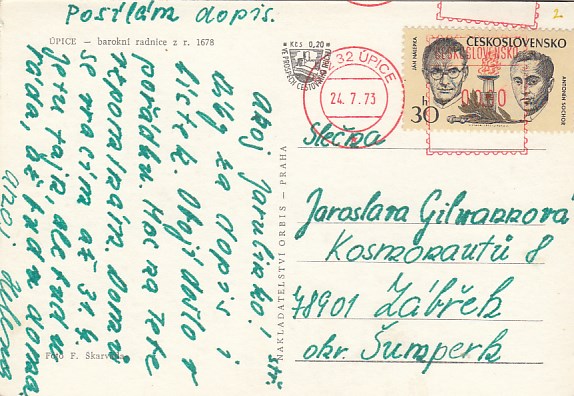 Posílám dopis.
ÚPICE — barokní radnice z r. 1678
Ahoj Jaruško!
Díky za dopis i
lístek. Obojí došlo v
pořádku. Moc na Tebe
vzpomínám. Domů
se vracím až 31.
je tu fajn, ale
ráda, až doma.
Ahoj Helena
Foto F. Skarvada
NAKLADATELSTVÍ ORBIS — PRAHA
Kčs 0,20
VE PROSPĚCH CESTOVNÍHO RUCHU
32 ÚPICE
24. 7. 73
ČESKOSLOVENSKO
ČESKOSLOVENSKO
JÁN NÁLEPKA
ANTONÍN SOCHOR
30 h
2
Slečna
Jaroslava
Kosmonautů 8
78901 Zábřeh
okr. Šumperk